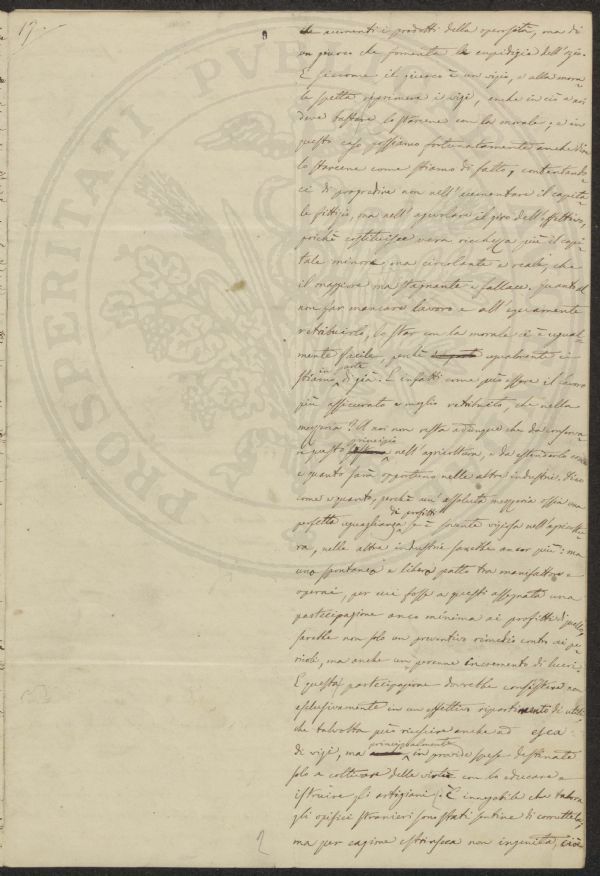 19.
che aumenti i prodotti della operosità, ma di
un giuoco che fomenta la cupidigia dell'ozio.
E siccome il giuoco è un vizio, e alla mora-
le spetta reprimere i vizi, anche in ciò a noi
deve bastare lo starcene con la morale; e in
questo caso possiamo fortunatamente anche dir-
lo starcene come stiamo di fatto, contentando-
ci di progredire non nell'aumentare il capita-
le fittizio, ma nell'agevolare il giro dell'effettivo,
poichè costituisce vera ricchezza più il capi-
tale minore, ma circolante e reale, che
il maggiore ma stagnante e fallace. Quanto al
non far mancare lavoro e all'equamente
retribuirlo, lo star con la morale ci è egual-
mente facile, perchè egualmente ci
stiamo in parte di già. E infatti come può essere il lavoro
più assicurato e meglio retribuito, che nella
mezzeria? A noi non resta adunque che da conserva-
re questo principio nell'agricoltura, e da estenderlo come
e quanto sarà opportuno nelle altre industrie. Dico
come e quanto, perchè un'assoluta mezzeria ossia una
perfetta eguaglianza di profitti se è sovente viziosa nell'agricoltu-
ra, nelle altre industrie sarebbe ancor più: ma
uno spontaneo e libero patto tra manifattore e
operai, per cui fosse a questi assegnata una
partecipazione anco minima ai profitti di quello,
sarebbe non solo un preventivo rimedio contro ai pe-
ricoli, ma anche un perenne incremento di lucri.
E questa partecipazione dovrebbe consistere non
esclusivamente in un effettivo ripartimento di utili,
che talvolta può riescire anche ad esca
di vizi, ma principalmente in provvide spese destinate
solo a coltivare delle virtù con lo educare e
istruire gli artigiani. È innegabile che talora
gli opifici stranieri sono stati sentine di corruttela,
ma per cagione estrinseca non ingenita, cioè
2
PROSPERITATI PVBLICAE